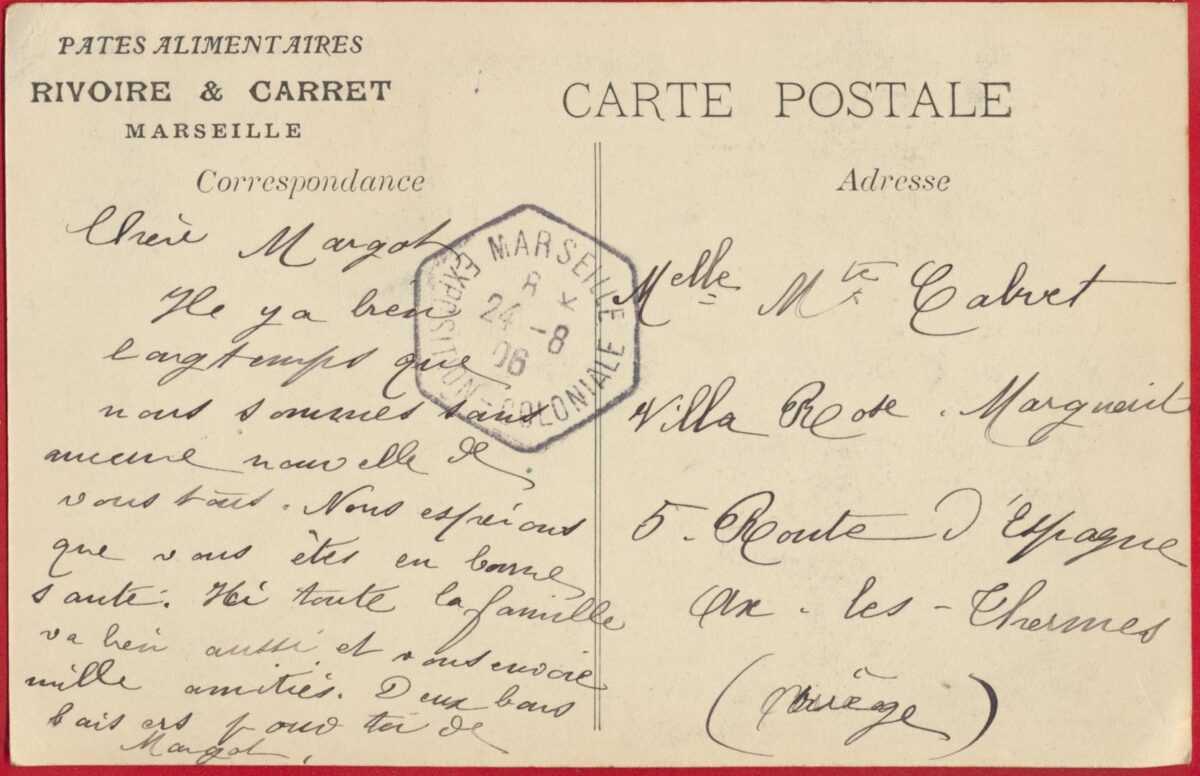 PATES ALIMENTAIRES
RIVOIRE & CARRET
MARSEILLE
CARTE POSTALE
Correspondance
Adresse
Chère Margot
Il y a bien
longtemps que
nous sommes sans
aucune nouvelle de
vous tous. Nous espérons
que vous êtes en bonne
santé. Ici toute la famille
va bien aussi et vous envoie
mille amitiés. Deux bons
baisers pour toi de
Margot.
MARSEILLE
EXPOSITION-COLONIALE
8 K
24 -8
06
Melle Mte Calvet
Villa Rose. Marguerit
5. Route d'Espagne
Ax-les-Thermes
(Ariège)